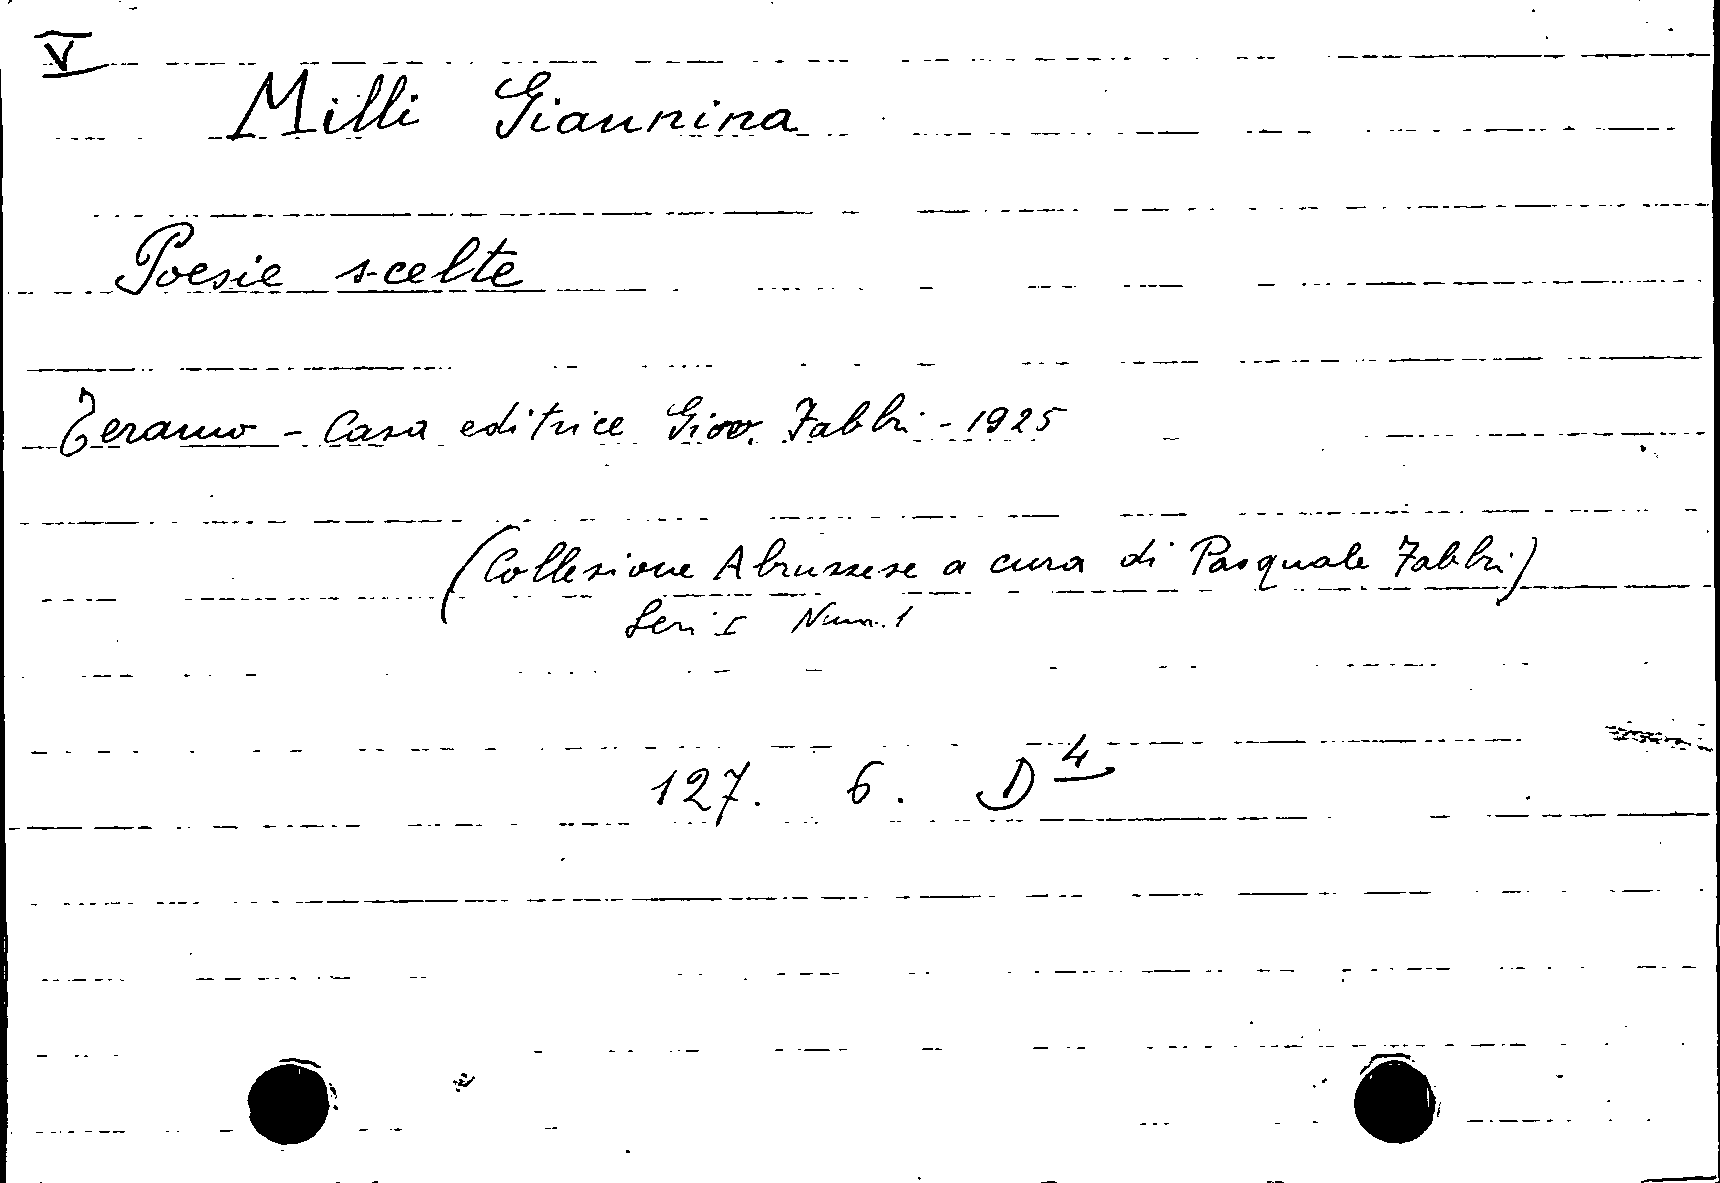 V
Milli Giannina
Poesie scelte
Teramo - Casa editrice Giov. Fabbri - 1925
(Collezione Abruzzese a cura di Pasquale Fabbri)
Seri I Num. 1
127. 6. D4